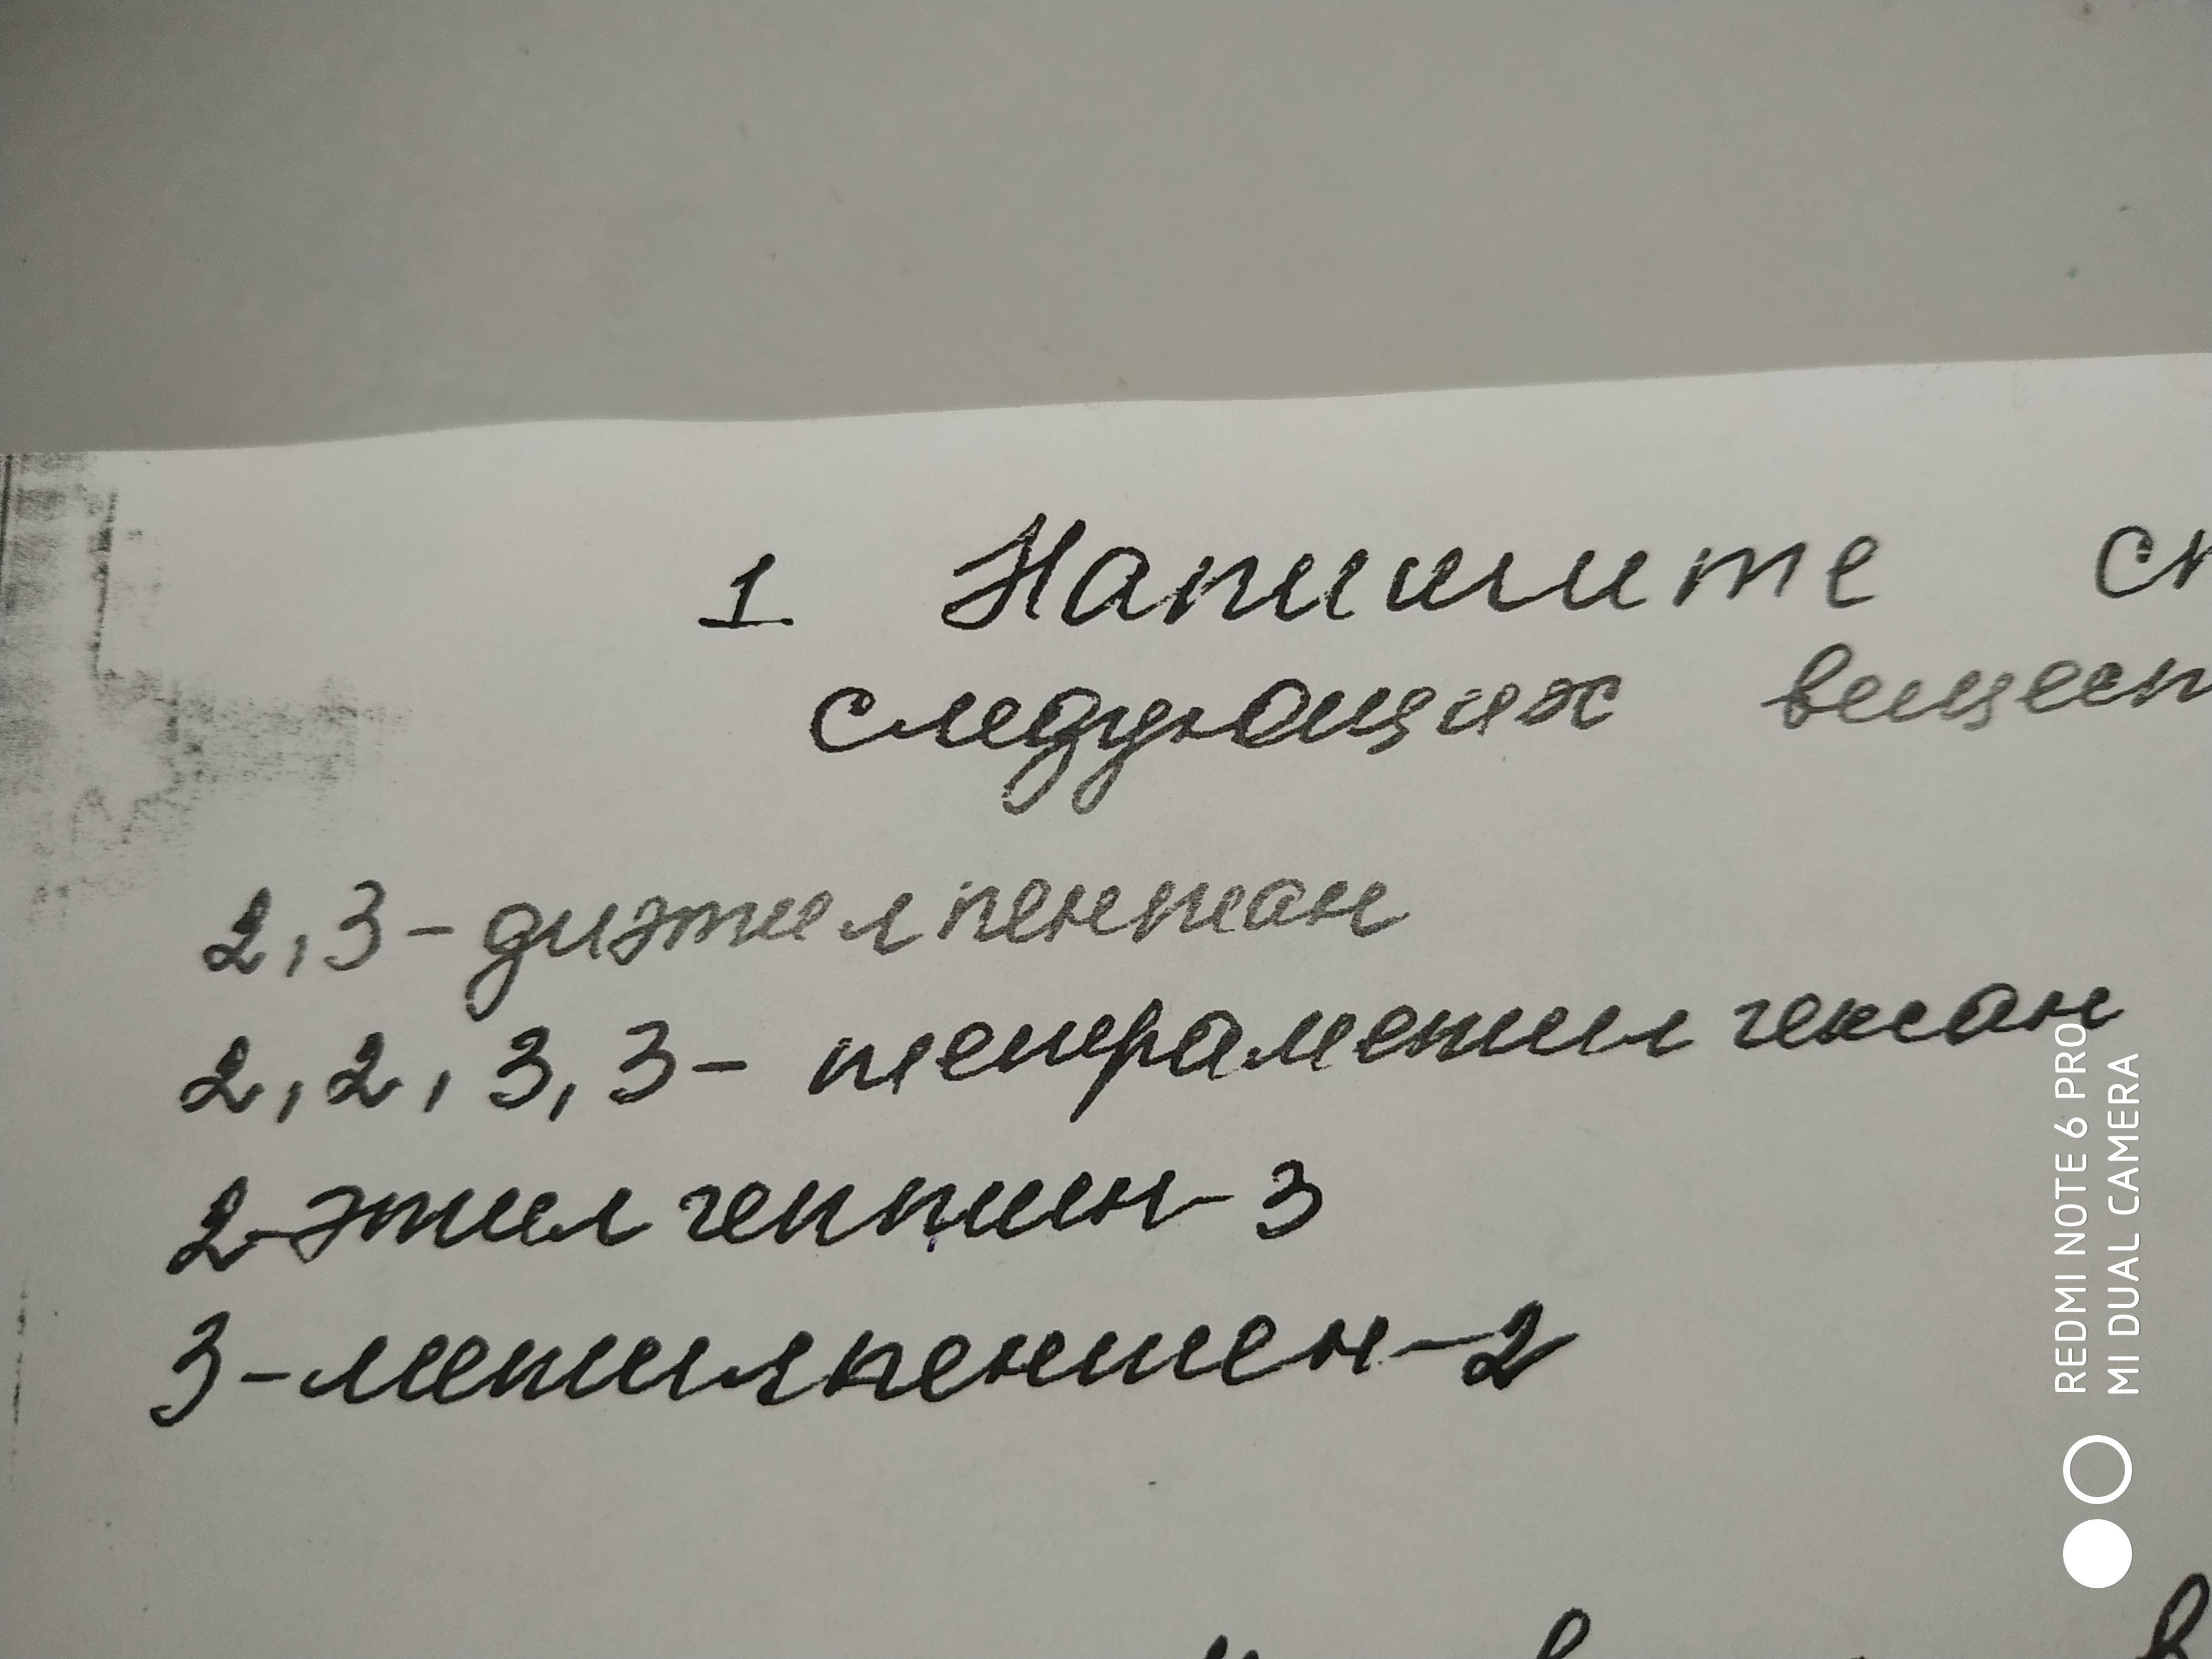 1 Напишите
следующих
2,3-диэтилпентан
2,2,3,3- тетраметилгексан
2-этилгептин-3
3-метилпентен-2
REDMI NOTE 6 PRO
MI DUAL CAMERA